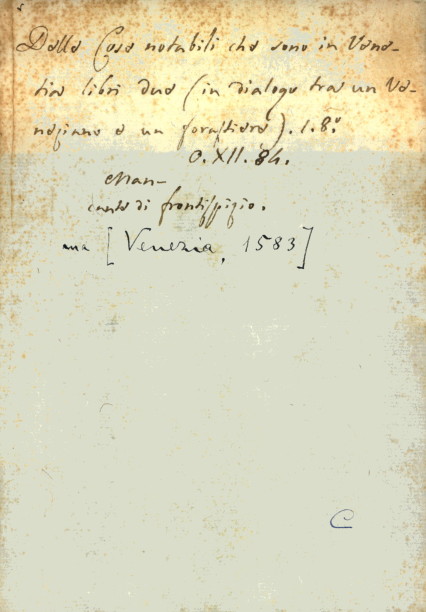 Delle Cose notabili che sono in Vene-
tia libri due (in dialogo tra un Ve-
neziano e un forastiere). 1. 8.º
O. XII. 84.
Man-
cante di frontispizio.
ma [Venezia, 1583]
C